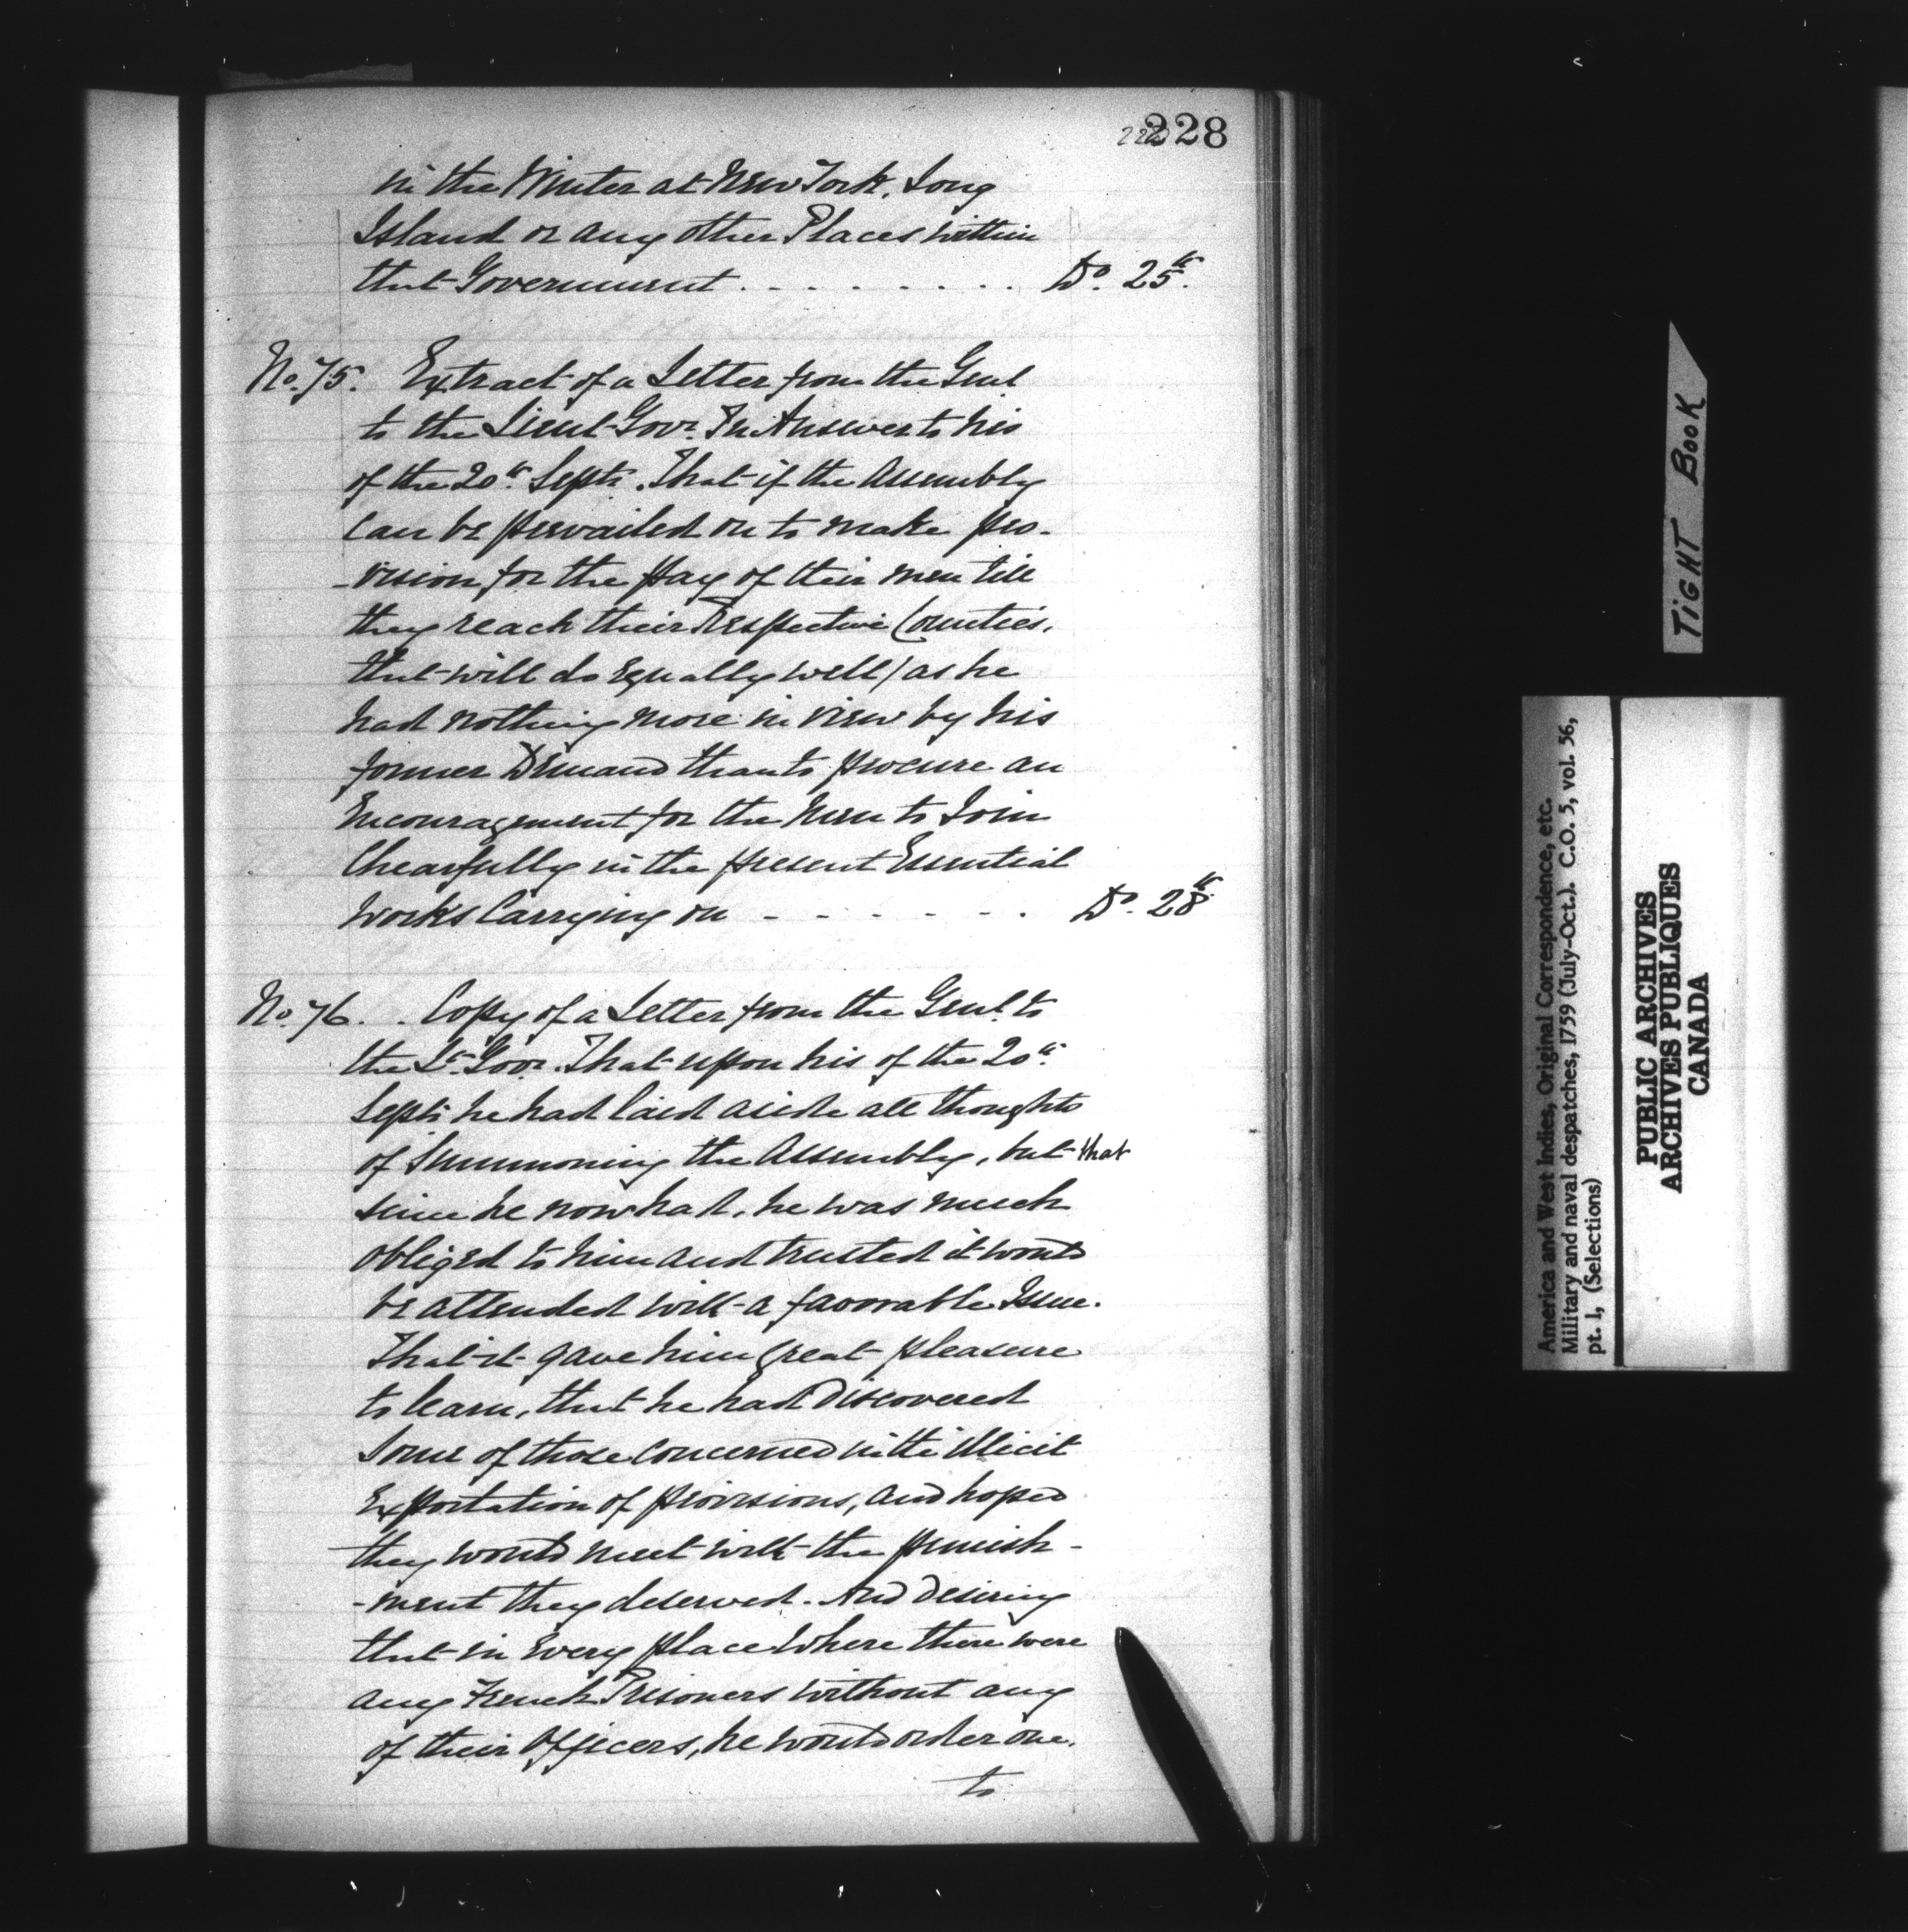 228
in the Winter at New York, Long
Island or any other Places within
that Government . . . . . . . . . Do. 25th.
No. 75. Extract of a Letter from the Genl
to the Lieut Govr. In Answer to his
of the 20th. Septr. That if the Assembly
can be prevailed on to make pro-
-vision for the pay of their men till
they reach their Respective Counties,
that will do Equally well, as he
had nothing more in view by his
former Demand than to procure an
Encouragement for the Men to Join
Chearfully in the present Essential
Works Carrying on - - - - - - . Do. 28th.
No. 76. . Copy of a Letter from the Genl. to
the Lt. Govr. That upon his of the 20th.
Septr he had laid aside all thoughts
of Summoning the Assembly, but that
since he now had, he was much
obliged to him and trusted it would
be attended with a favorable Issue.
That it gave him great pleasure
to learn, that he had discovered
some of those concerned in the illicit
Exportation of provisions, and hoped
they would meet with the punish-
-ment they deserved. And desiring
that in Every place where there were
any French Prisoners without any
of their Officers, he would order one.
to
TIGHT BOOK
America and West Indies, Original Correspondence, etc.
Military and naval despatches, 1759 (July-Oct.). C.O. 5, vol. 56,
pt. 1, (Selections)
PUBLIC ARCHIVES
ARCHIVES PUBLIQUES
CANADA